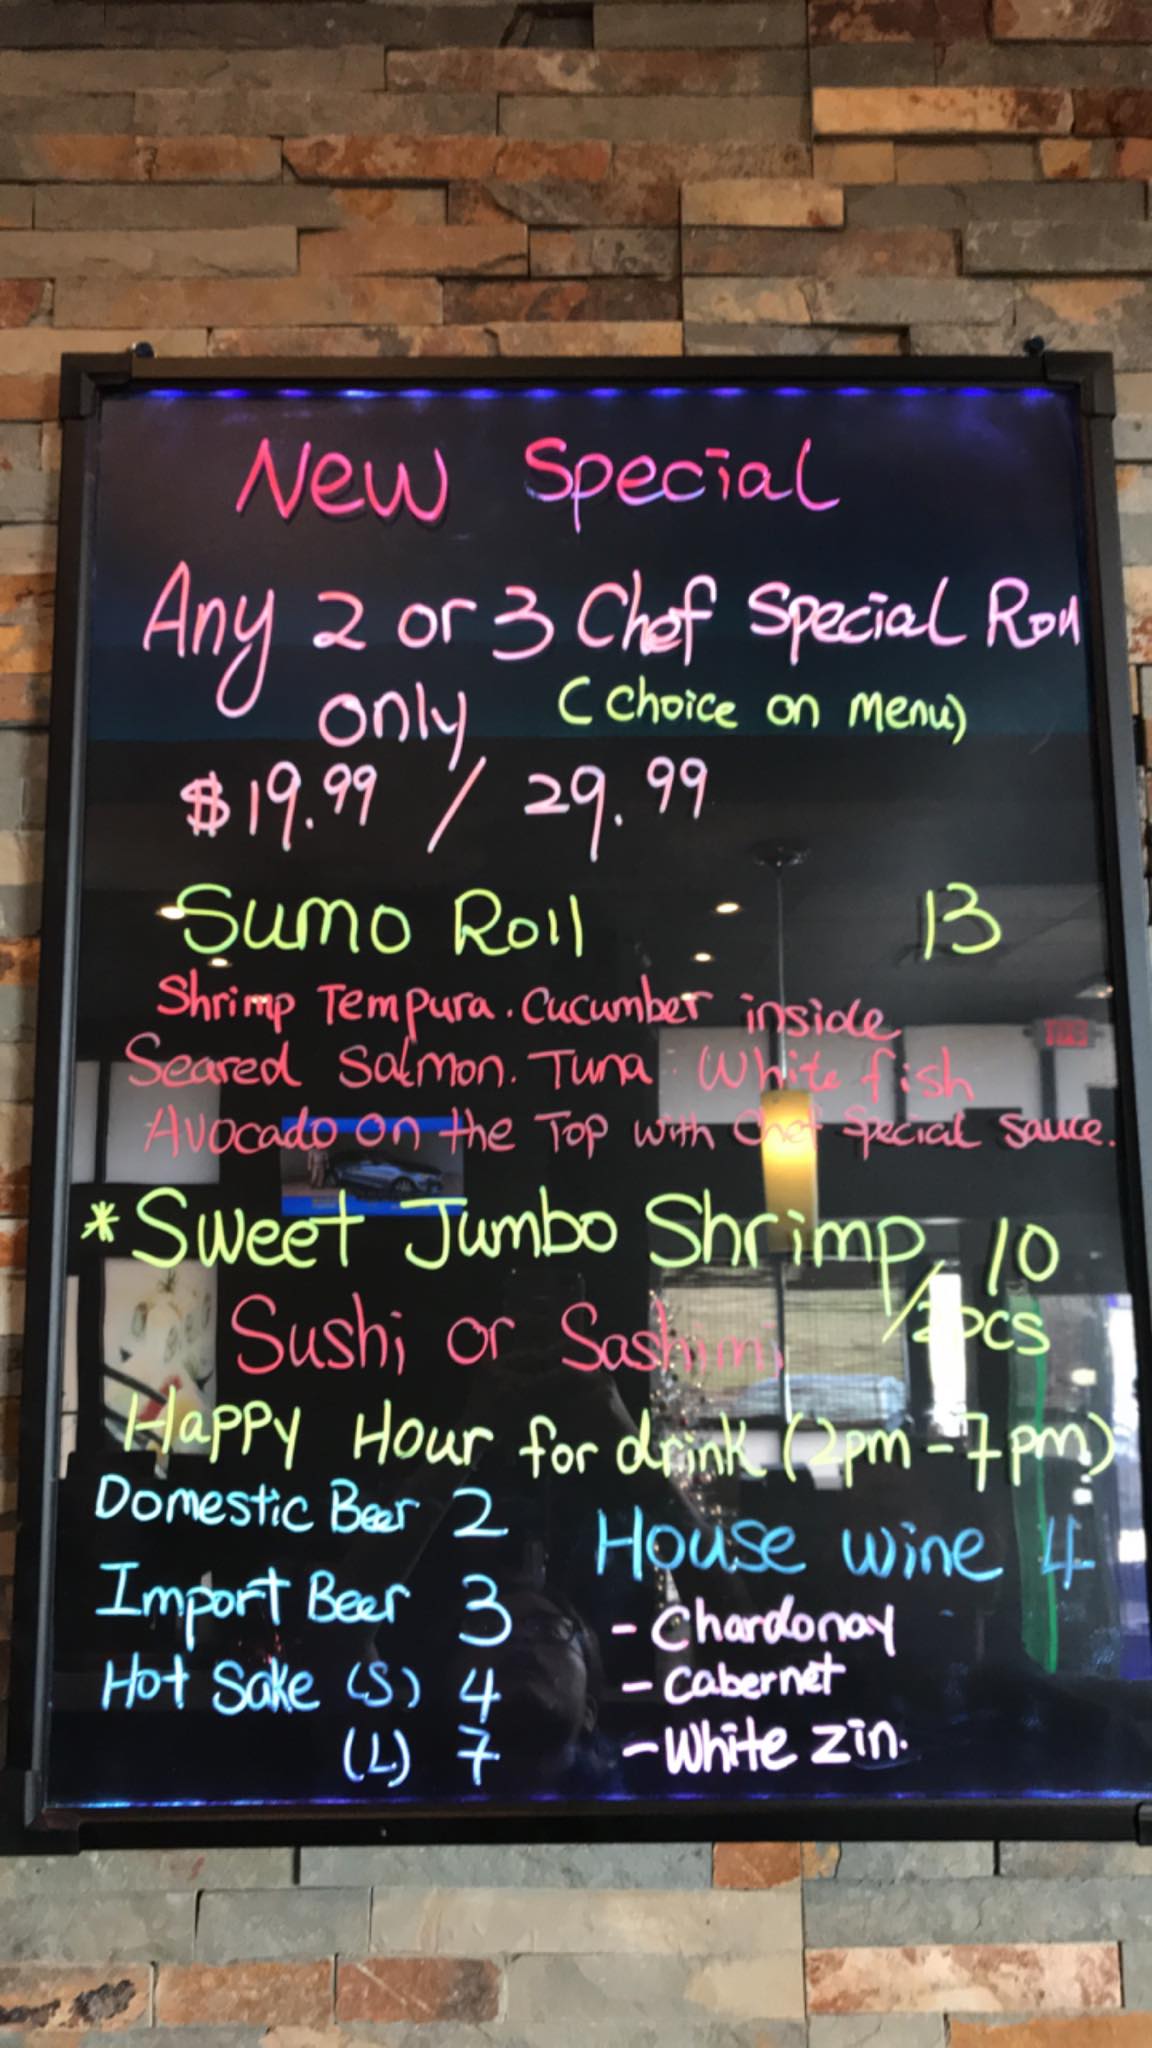 New Special
Any 2 or 3 Chef Special Roll
only (Choice on Menu)
$19.99 / 29.99
Sumo Roll 13
Shrimp Tempura. Cucumber inside
Seared Salmon. Tuna. White fish
Avocado on the Top with Chef Special sauce.
*Sweet Jumbo Shrimp 10
Sushi or Sashimi /2pcs
Happy Hour for drink (2pm - 7pm)
Domestic Beer 2
Import Beer 3
Hot Sake (S) 4
(L) 7
House wine 4
- Chardonay
- Cabernet
- White Zin.